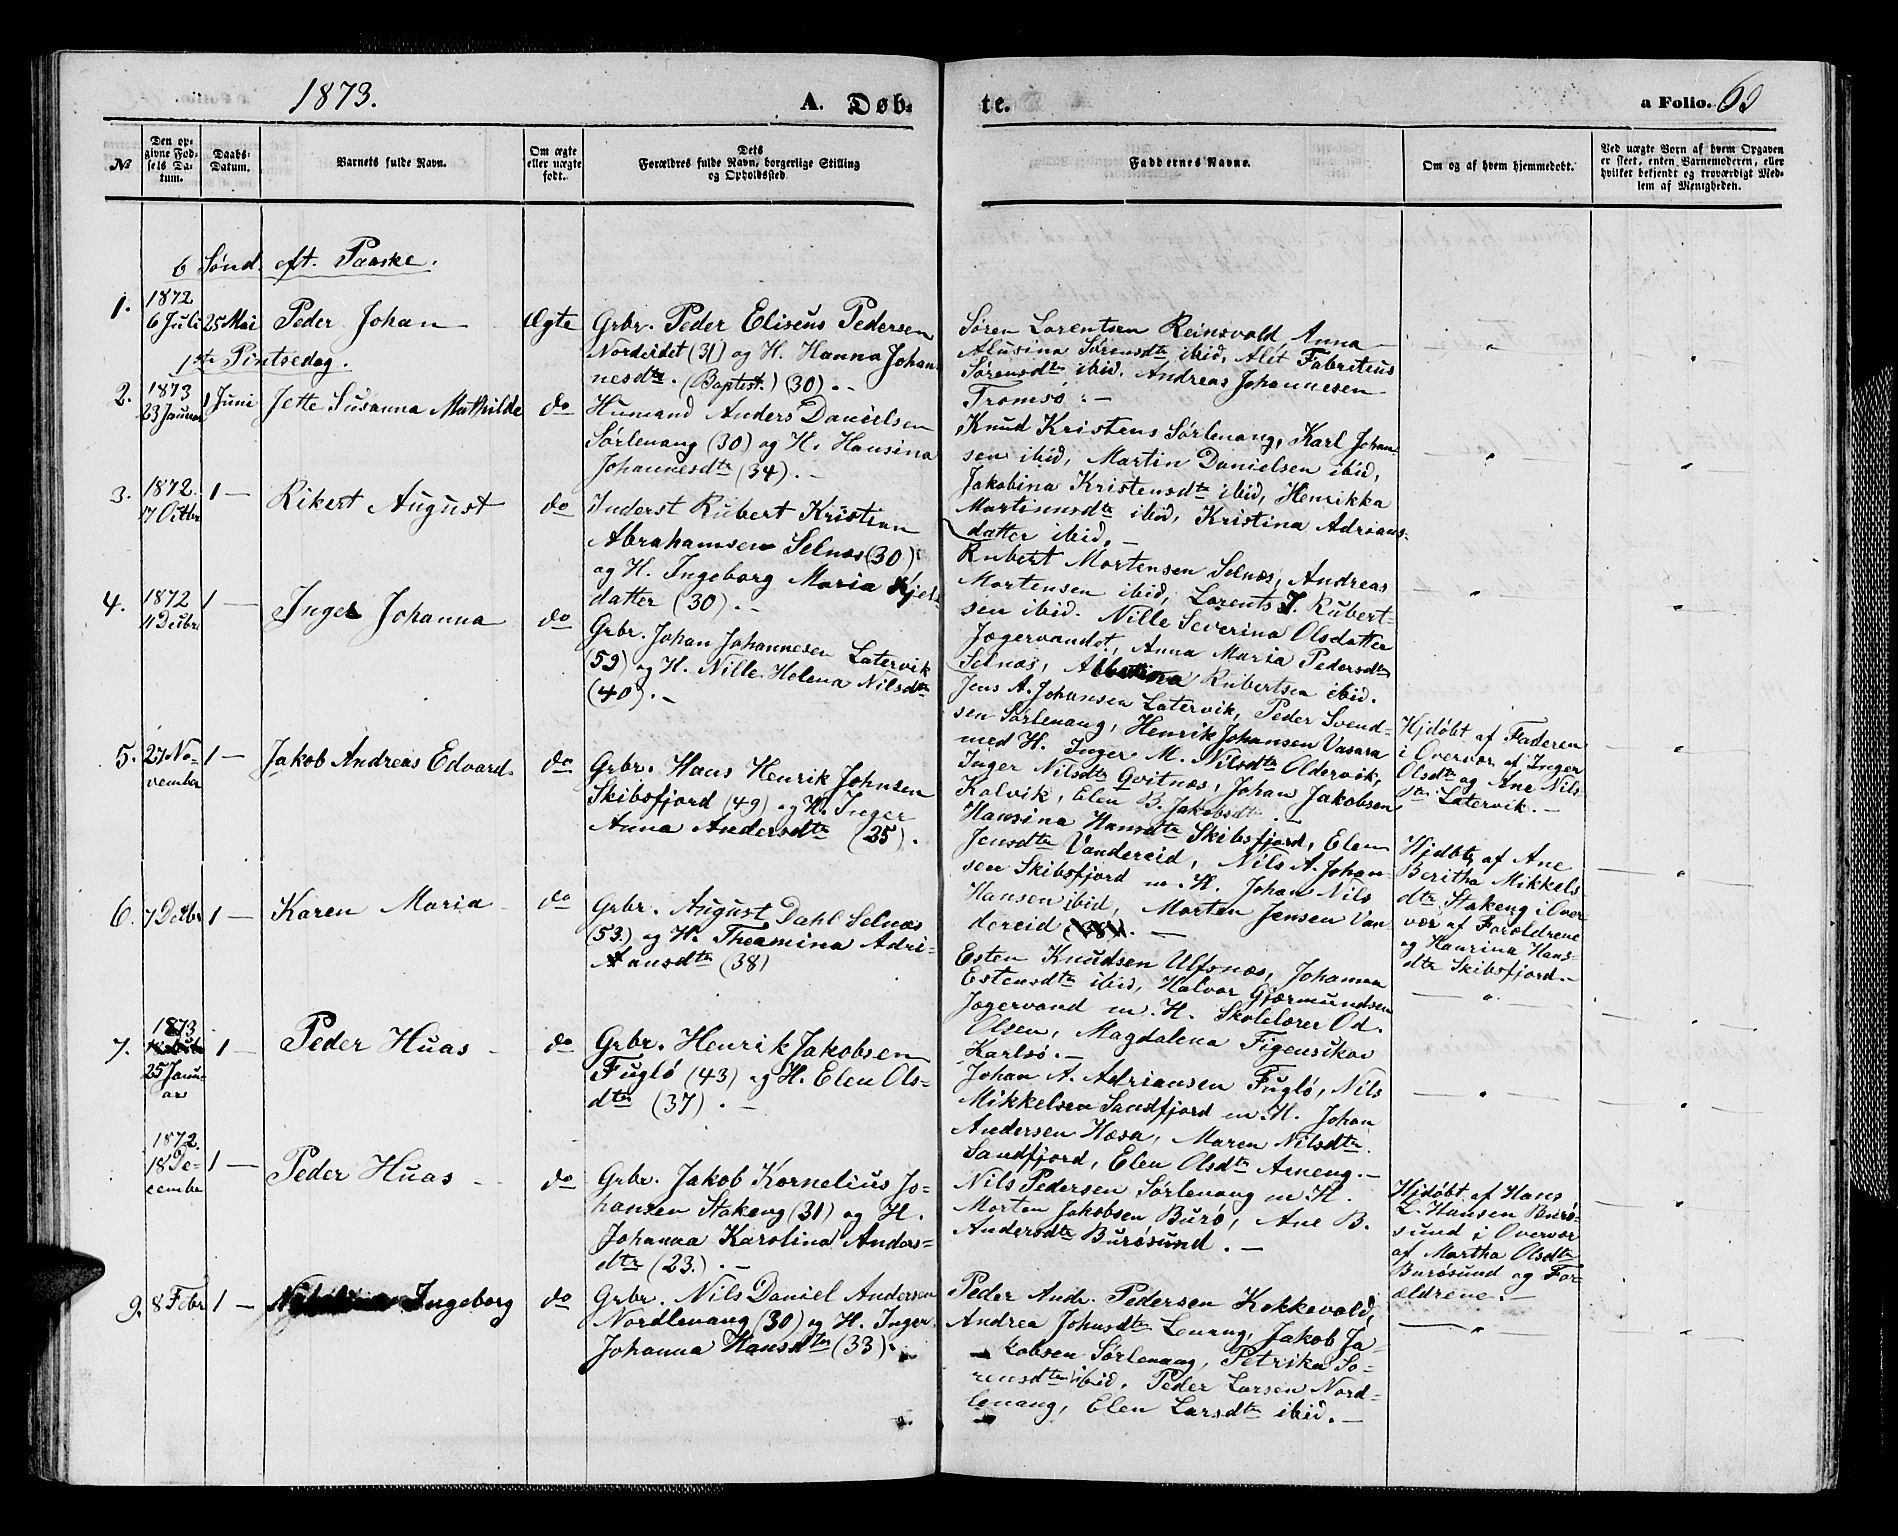 1873.
A. Døb-
te.
a Folio. 60
No
Den op-
givne Fød-
sels Da-
tum.
Daabs-
Datum.
Barnets fulde Navn.
Om ægte
eller uægte
født.
Dets
Forældres fulde Navn, borgerlige Stilling
og Opholdssted
Faddernes Navne.
Om og af hvem hjemmedøbt.
Ved uægte Børn af hvem Opgaven
er skeet, enten Barnemoderen, eller
hvilket bekjendt og troværdigt Med-
lem af Menigheden.
6 Sønd. eft. Paaske.
1.
1872
6 Juli
25 Mai
Peder Johan
Ægte
Grbr. Peder Eliseus Pedersen
Nordeidet (31) og H. Hanna Johan
nesdtr. (Baptist.) (30). –
Søren Lorentsen Reinsvold, Anna
Alusina Sørensdtr ibid, Alet Fabritius
Sørensdtr ibid, Andreas Johannesen
Tromsø. –
1ste Pintsedag.
2.
1873
23 Januar
1 Juni
Jette Susanna Mathilde
do
Husmand Anders Danielsen
Sørlenang (30) og H. Hansina
Johannesdtr (34). –
Knud Kristens Sørlenang, Karl Johan
sen ibid, Martin Danielsen ibid,
Jakobina Kristensdtr ibid, Henrikka
Martinusdtr ibid, Kristina Adrians-
datter ibid. –
3.
1872.
17 Octbr
1 –
Rikert August
do
Inderst Rubert Kristian
Abrahamsen Selnæs (30)
og H. Ingeborg Maria Kjels
datter (30). –
Rubert Mortensen Selnæs, Andreas
Mortensen ibid, Lorents J. Rubert-
sen ibid. Nille Severina Olsdatter
Jægervandet, Anna Maria Pedersdtr
Selnæs, Albertina Rubertsen ibid.
4.
1872
11 Decbr
1 –
Inger Johanna
do
Grbr. Johan Johannesen Latervik
(59) og H. Nille Helena Nilsdtr
(40). –
Jens A. Johansen Latervik, Peder Svend-
sen Sørlenang, Henrik Johansen Vasara
med H. Inger M. Nilsdtr Oldervik,
Inger Nilsdtr Gvitnæs, Johan Jakobsen
Kalvik, Elen B. Jakobsdtr. –
Hjdøbt af Faderen
i Overvær af Inger
Olsdtr og Ane Nils
dtr Latervik. –
5.
27 No-
vember
1 –
Jakob Andreas Edvard
do
Grbr. Hans Henrik Johnsen
Skibsfjord (49) og H. Inger
Anna Andersdtr (25).
Hansina Hansdtr Skibsfjord, Elen
Jensdtr Vandereid, Nils A. Johan-
sen Skibsfjord m. H. Johan Nils
Hansen ibid, Morten Jensen Van
dereid. –
Hjdøbt af Ane
Beritha Mikkels
dtr Stakeng i Over
vær af Forældrene
og Hansina Hans-
dtr Skibsfjord. –
6.
7 Decbr
1 –
Karen Maria
do
Grbr. August Dahl Selnæs
(53.) og H. Theamina Adri-
ansdtr (38)
Esten Knudsen Ulfsnæs, Johanna
Estensdtr ibid, Halvor Gjørmundsen
Jægervand m. H. Skolelærer Od.
Olsen, Magdalena Figenskov
Karlsø. –
7.
1873
25 Janu-
ar
1 –
Peder Huas
do
Grbr. Henrik Jakobsen
Fuglø (43) og H. Elen Ols-
dtr (37). –
Johan A. Adriansen Fuglø, Nils
Mikkelsen Sandfjord m. H. Johan
Andersen Hæsa, Maren Nilsdtr
Sandfjord, Elen Olsdtr Arneng. –
1872.
18 De-
cember
1 –
Peder Huas
do
Grbr. Jakob Kornelius Jo-
hansen Stakeng (31) og H.
Johanna Karolina Anders-
dtr (23.) –
Nils Pedersen Sørlenang m H.
Morten Jakobsen Burø, Ane B.
Andersdtr Burøsund. –
Hjdøbt af Hans
L. Hansen Burø-
sund i Overvær
af Martha Olsdtr
Burøsund og For-
ældrene. –
9.
8 Febr
1 –
Ingeborg
do
Grbr. Nils Daniel Andersen
Nordlenang (30) og H. Inger
Johanna Hansdtr (33).
Peder Andr. Pedersen Kokkevold,
Andrea Johnsdtr Lenang, Jakob Ja-
kobsen Sørlenang, Petrika Sø-
rensdtr ibid, Peder Larsen Nord-
lenang, Elen Larsdtr ibid. –